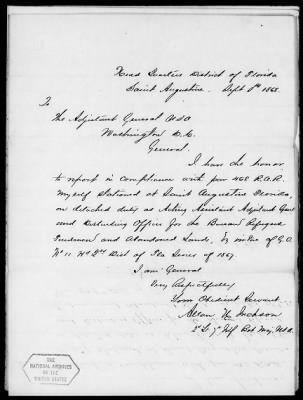 Head Quarters District of Florida
Saint Augustine. Sept 1st 1868
To
The Adjutant General USA
Washington D.C.
General.
I have the honor
to report in compliance with par 468 R.A.R.
myself stationed at Saint Augustine Florida,
on detached duty as Acting Assistant Adjutant Genl
and Disbursing Officer for the Bureau Refugees
Freedmen and Abandoned Lands, by virtue of G.O.
No 11 Hd Qrs Dist of Fla Series of 1867
I am General
Very Respectfully
Your Obedient Servant
Allan H. Jackson
2d Lt 7th Inf Bvt Maj. USA.
THE
NATIONAL ARCHIVES
OF THE
UNITED STATES